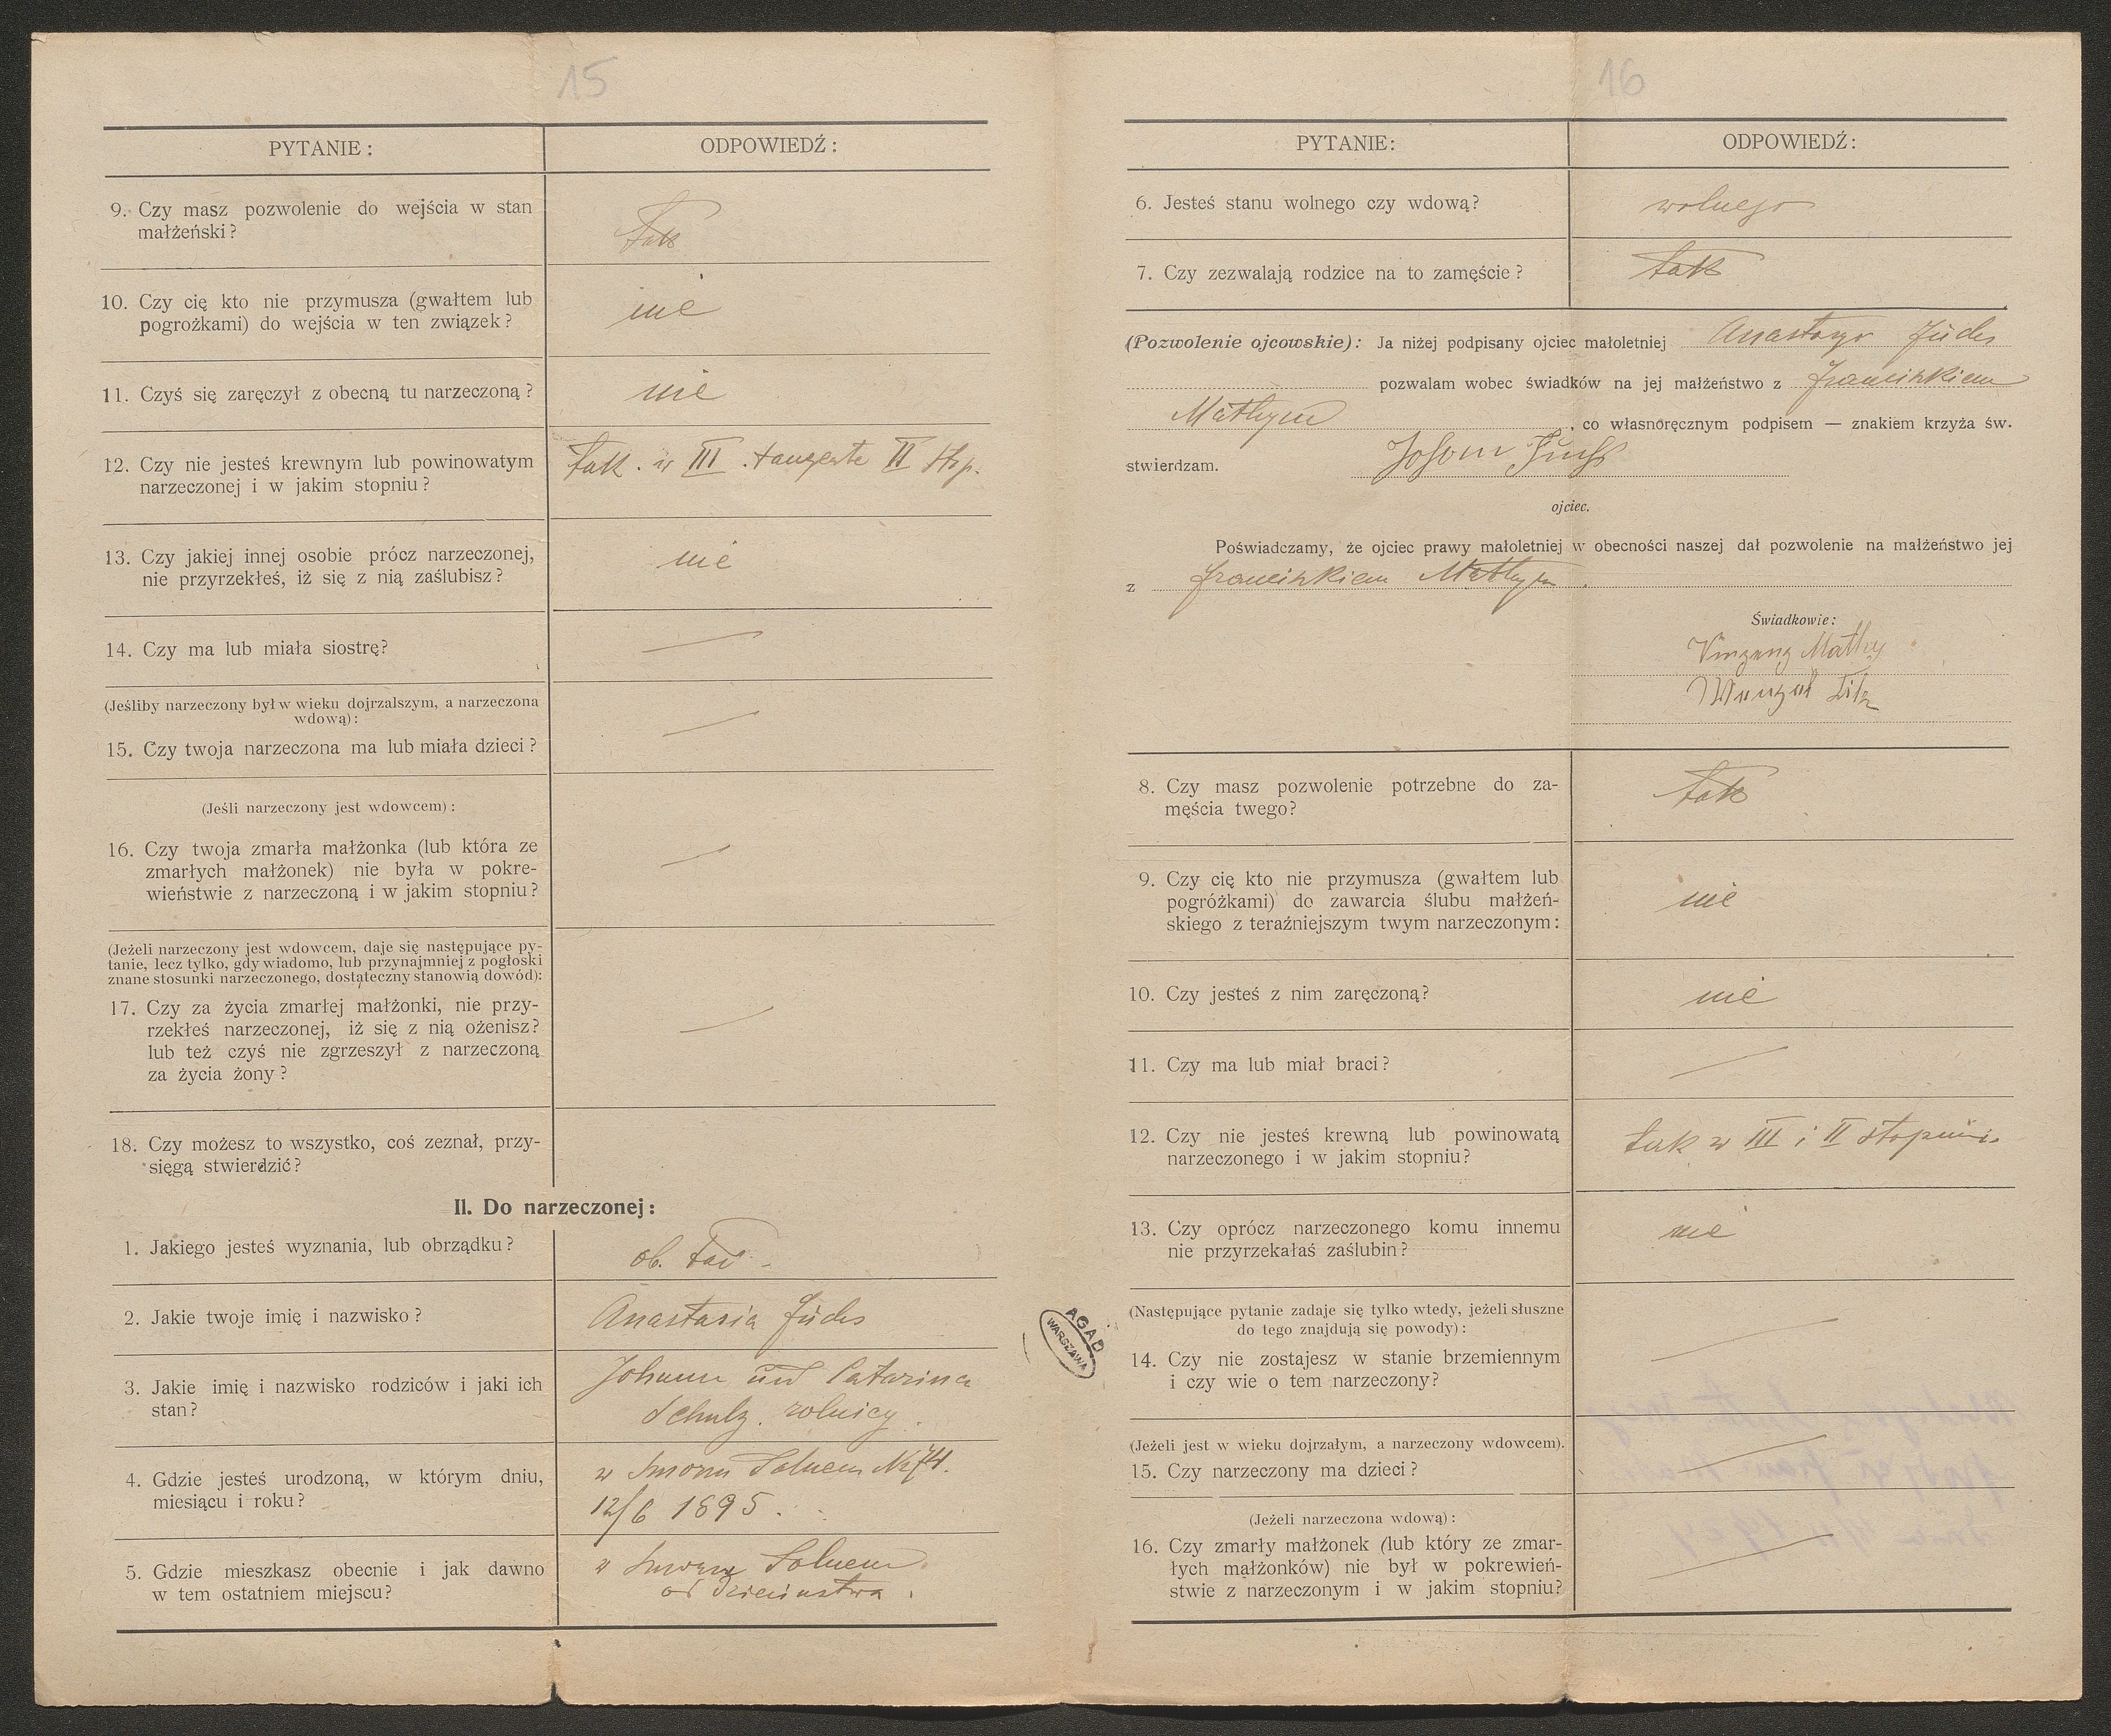 15
PYTANIE:
ODPOWIEDŹ:
9. Czy masz pozwolenie do wejścia w stan
małżeński?
tak
10. Czy cię kto nie przymusza (gwałtem lub
pogrożkami) do wejścia w ten związek?
nie
11. Czyś się zaręczył z obecną tu narzeczoną?
nie
12. Czy nie jesteś krewnym lub powinowatym
narzeczonej i w jakim stopniu?
tak. w III. tangente II stp.
13. Czy jakiej innej osobie prócz narzeczonej,
nie przyrzekłeś, iż się z nią zaślubisz?
nie
14. Czy ma lub miała siostrę?
(Jeśliby narzeczony był w wieku dojrzalszym, a narzeczona
wdową):
15. Czy twoja narzeczona ma lub miała dzieci?
(Jeśli narzeczony jest wdowcem):
16. Czy twoja zmarła małżonka (lub która ze
zmarłych małżonek) nie była w pokre-
wieństwie z narzeczoną i w jakim stopniu?
(Jeżeli narzeczony jest wdowcem, daje się następujące py-
tanie, lecz tylko, gdy wiadomo, lub przynajmniej z pogłoski
znane stosunki narzeczonego, dostateczny stanowią dowód):
17. Czy za życia zmarłej małżonki, nie przy-
rzekłeś narzeczonej, iż się z nią ożenisz?
lub też czyś nie zgrzeszył z narzeczoną
za życia żony?
18. Czy możesz to wszystko, coś zeznał, przy-
sięgą stwierdzić?
II. Do narzeczonej:
1. Jakiego jesteś wyznania, lub obrządku?
ob. łać.
2. Jakie twoje imię i nazwisko?
Anastasia Füchs
3. Jakie imię i nazwisko rodziców i jaki ich
stan?
Johann und Catarina
Schulz. rolnicy.
4. Gdzie jesteś urodzoną, w którym dniu,
miesiącu i roku?
w Solnem Nr 74.
12/6 1895.
5. Gdzie mieszkasz obecnie i jak dawno
w tem ostatniem miejscu?
w Solnem
od dzieciństwa.
AGAD
WARSZAWA
16
PYTANIE:
ODPOWIEDŹ:
6. Jesteś stanu wolnego czy wdową?
wolnego
7. Czy zezwalają rodzice na to zamęście?
tak
(Pozwolenie ojcowskie): Ja niżej podpisany ojciec małoletniej Anastazyi Füchs
pozwalam wobec świadków na jej małżeństwo z Franciszkiem
Mathym, co własnoręcznym podpisem — znakiem krzyża św.
stwierdzam. Johann Fuchs
ojciec.
Poświadczamy, że ojciec prawy małoletniej w obecności naszej dał pozwolenie na małżeństwo jej
z Franciszkiem Mathym.
Świadkowie:
Vinzenz Mathy
Wenzel
8. Czy masz pozwolenie potrzebne do za-
męścia twego?
tak
9. Czy cię kto nie przymusza (gwałtem lub
pogróżkami) do zawarcia ślubu małżeń-
skiego z teraźniejszym twym narzeczonym:
nie
10. Czy jesteś z nim zaręczoną?
nie
11. Czy ma lub miał braci?
12. Czy nie jesteś krewną lub powinowatą
narzeczonego i w jakim stopniu?
tak w III i II stopniu.
13. Czy oprócz narzeczonego komu innemu
nie przyrzekałaś zaślubin?
nie
(Następujące pytanie zadaje się tylko wtedy, jeżeli słuszne
do tego znajdują się powody):
14. Czy nie zostajesz w stanie brzemiennym
i czy wie o tem narzeczony?
(Jeżeli jest w wieku dojrzałym, a narzeczony wdowcem).
15. Czy narzeczony ma dzieci?
(Jeżeli narzeczona wdową):
16. Czy zmarły małżonek (lub który ze zmar-
łych małżonków) nie był w pokrewień-
stwie z narzeczonym i w jakim stopniu?